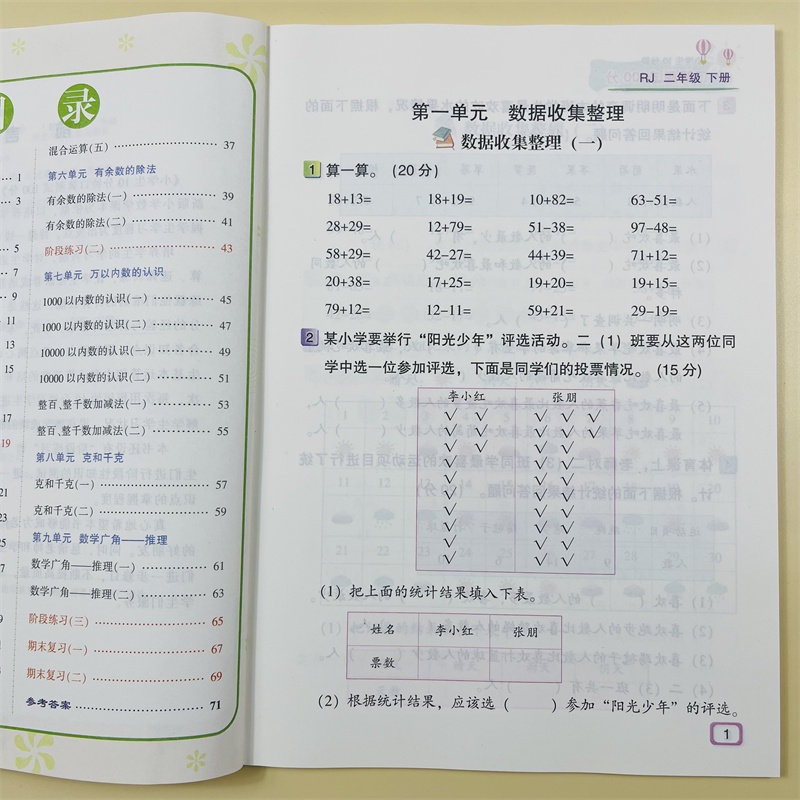 录
混合运算(五) 37
第六单元 有余数的除法
有余数的除法(一) 39
有余数的除法(二) 41
阶段练习(二) 43
第七单元 万以内数的认识
1000以内数的认识(一) 45
1000以内数的认识(二) 47
10000以内数的认识(一) 49
10000以内数的认识(二) 51
整百、整千数加减法(一) 53
整百、整千数加减法(二) 55
第八单元 克和千克
克和千克(一) 57
克和千克(二) 59
第九单元 数学广角——推理
数学广角——推理(一) 61
数学广角——推理(二) 63
阶段练习(三) 65
期末复习(一) 67
期末复习(二) 69
参考答案 71
1
3
5
7
9
11
13
15
17
19
21
23
25
27
29
31
33
35
RJ 二年级 下册
第一单元 数据收集整理
数据收集整理(一)
1 算一算。(20分)
18+13= 18+19= 10+82= 63-51=
28+29= 12+79= 51-38= 97-48=
58+29= 42-27= 44+39= 71+12=
20+38= 17+25= 19+20= 19+15=
79+12= 12-11= 59+21= 29-19=
2 某小学要举行“阳光少年”评选活动。二(1)班要从这两位同
学中选一位参加评选,下面是同学们的投票情况。(15分)
李小红 张朋
√ √ √ √ √
√ √ √ √ √
√ √ √ √
√ √ √
√ √ √
√ √ √
√ √ √
√ √ √
√ √ √
√ √ √
(1) 把上面的统计结果填入下表。
姓名 李小红 张朋
票数
(2) 根据统计结果,应该选( )参加“阳光少年”的评选。
1